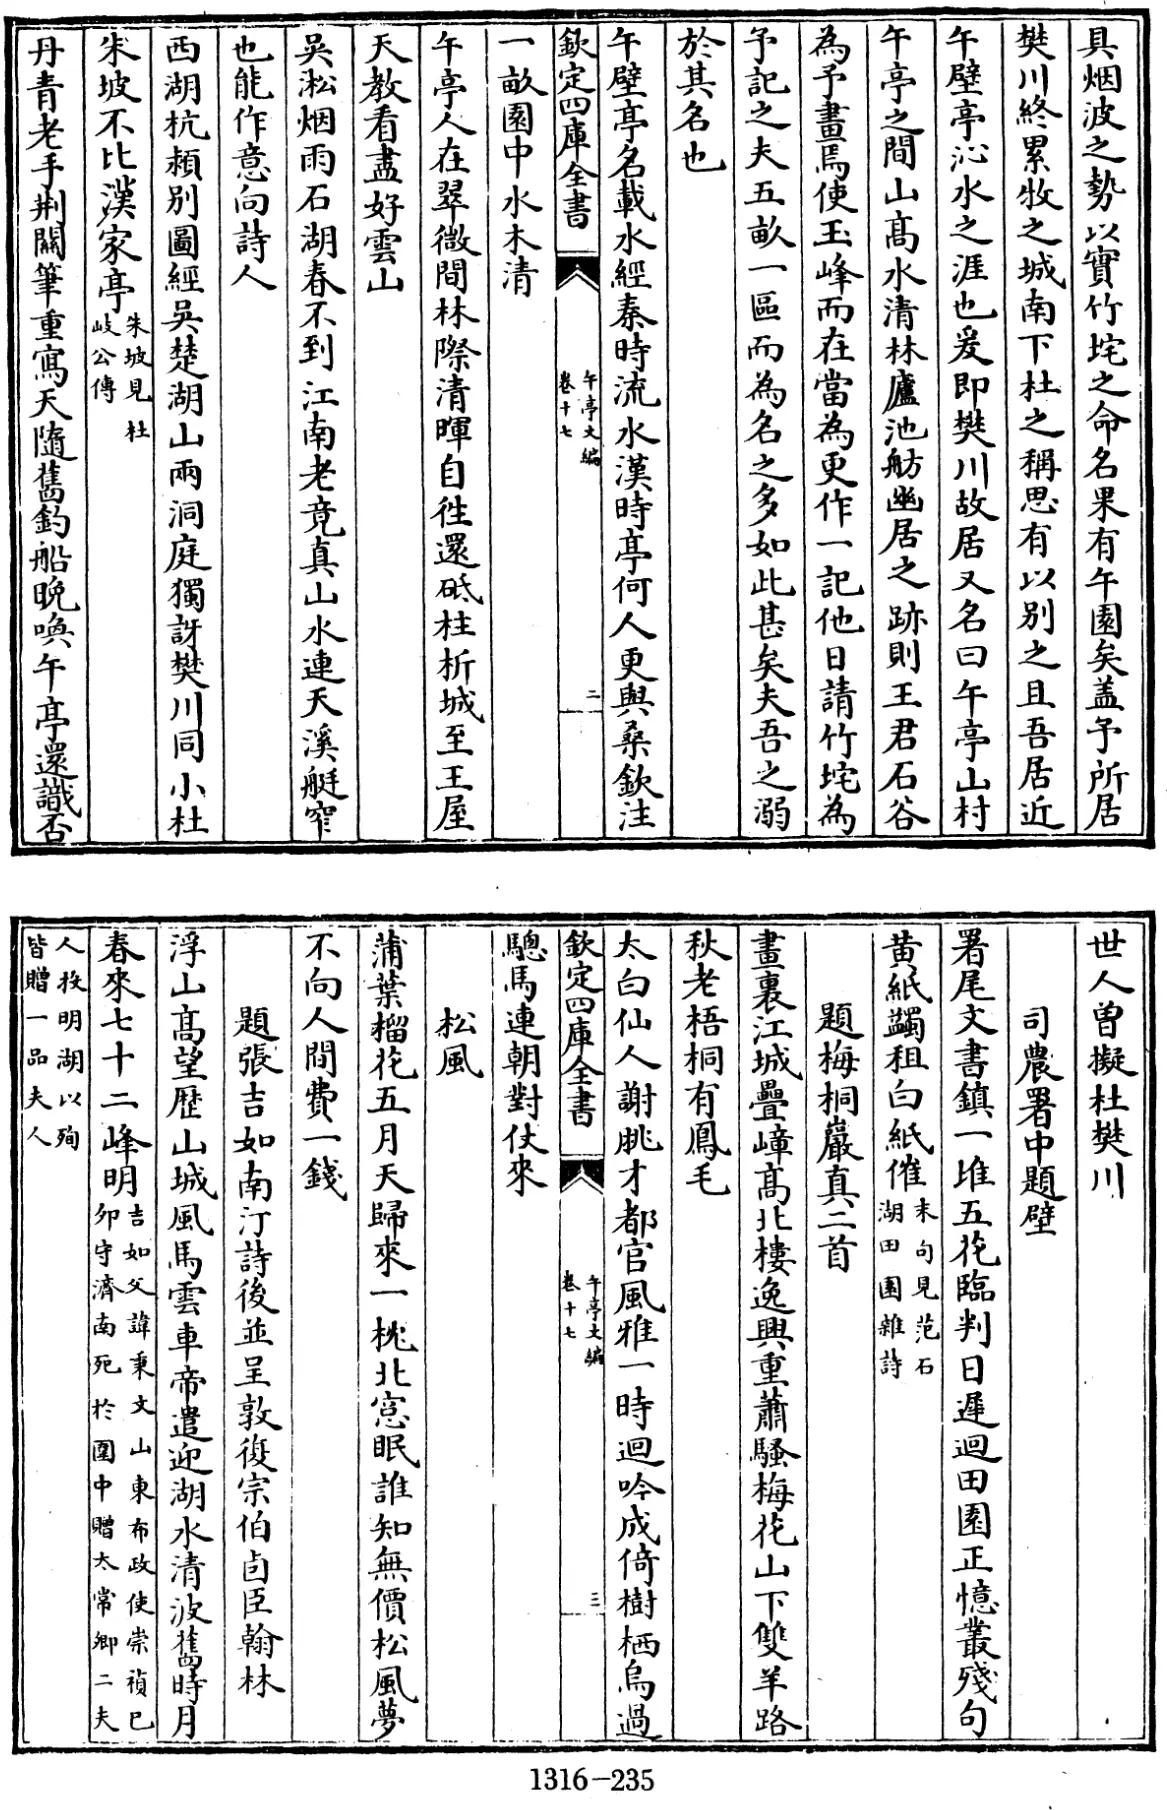 具烟波之勢以實竹垞之命名果有午園矣盖予所居
樊川終累牧之城南下杜之稱思有以別之且吾居近
午壁亭沁水之涯也爰即樊川故居又名曰午亭山村
午亭之間山髙水清林廬池舫幽居之跡則王君石谷
為予畫焉使玉峰而在當為更作一記他日請竹垞為
予記之夫五畝一區而為名之多如此甚矣夫吾之溺
於其名也
午壁亭名載水經秦時流水漢時亭何人更與桑欽注
欽定四庫全書
午亭文編
卷十七
二
一畝園中水木清
午亭人在翠微間林際清暉自徃還砥柱析城至王屋
天教看盡好雲山
吳淞烟雨石湖春不到江南老竟真山水連天溪艇窄
也能作意向詩人
西湖杭潁別圖經吳楚湖山兩洞庭獨訝樊川同小杜
朱坡不比漢家亭朱坡見杜
岐公傳
丹青老手荆關筆重寫天隨舊釣船晩喚午亭還識否
世人曽擬杜樊川
司農署中題壁
署尾文書鎮一堆五花臨判日遲迴田園正憶叢殘句
黄紙蠲租白紙催末句見范石
湖田園雜詩
題梅桐巖真二首
畫裏江城疊嶂髙北樓逸興重蕭騷梅花山下雙羊路
秋老梧桐有鳳毛
太白仙人謝朓才都官風雅一時迴吟成倚樹栖烏過
欽定四庫全書
午亭文編
卷十七
三
驄馬連朝對仗來
松風
蒲葉榴花五月天歸來一枕北窓眠誰知無價松風夢
不向人間費一錢
題張吉如南汀詩後並呈敦復宗伯卣臣翰林
浮山髙望歷山城風馬雲車帝遣迎湖水清波舊時月
春來七十二峰明吉如父諱秉文山東布政使崇禎已
卯守濟南死於圍中贈太常卿二夫
人投明湖以殉
皆贈一品夫人
1316-235